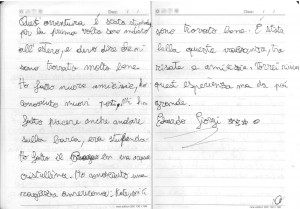 Quest'avventura è stata stupenda
per la prima volta sono andato
all'Estero, e devo dire che mi
sono trovato molto bene.
Ho fatto nuove amicizie, ho
conosciuto nuovi posti, Mi ha
fatto piacere anche andare
sulla barca, era stupenda
Ho fatto il
cristallino. Ho conosciuto una
ragazza americana, Kate,
sono trovato bene. È stata
bella questa vacanza, tra
risate e amicizia. Vorrei
quest'esperienza ma da più
grande.
Edoardo